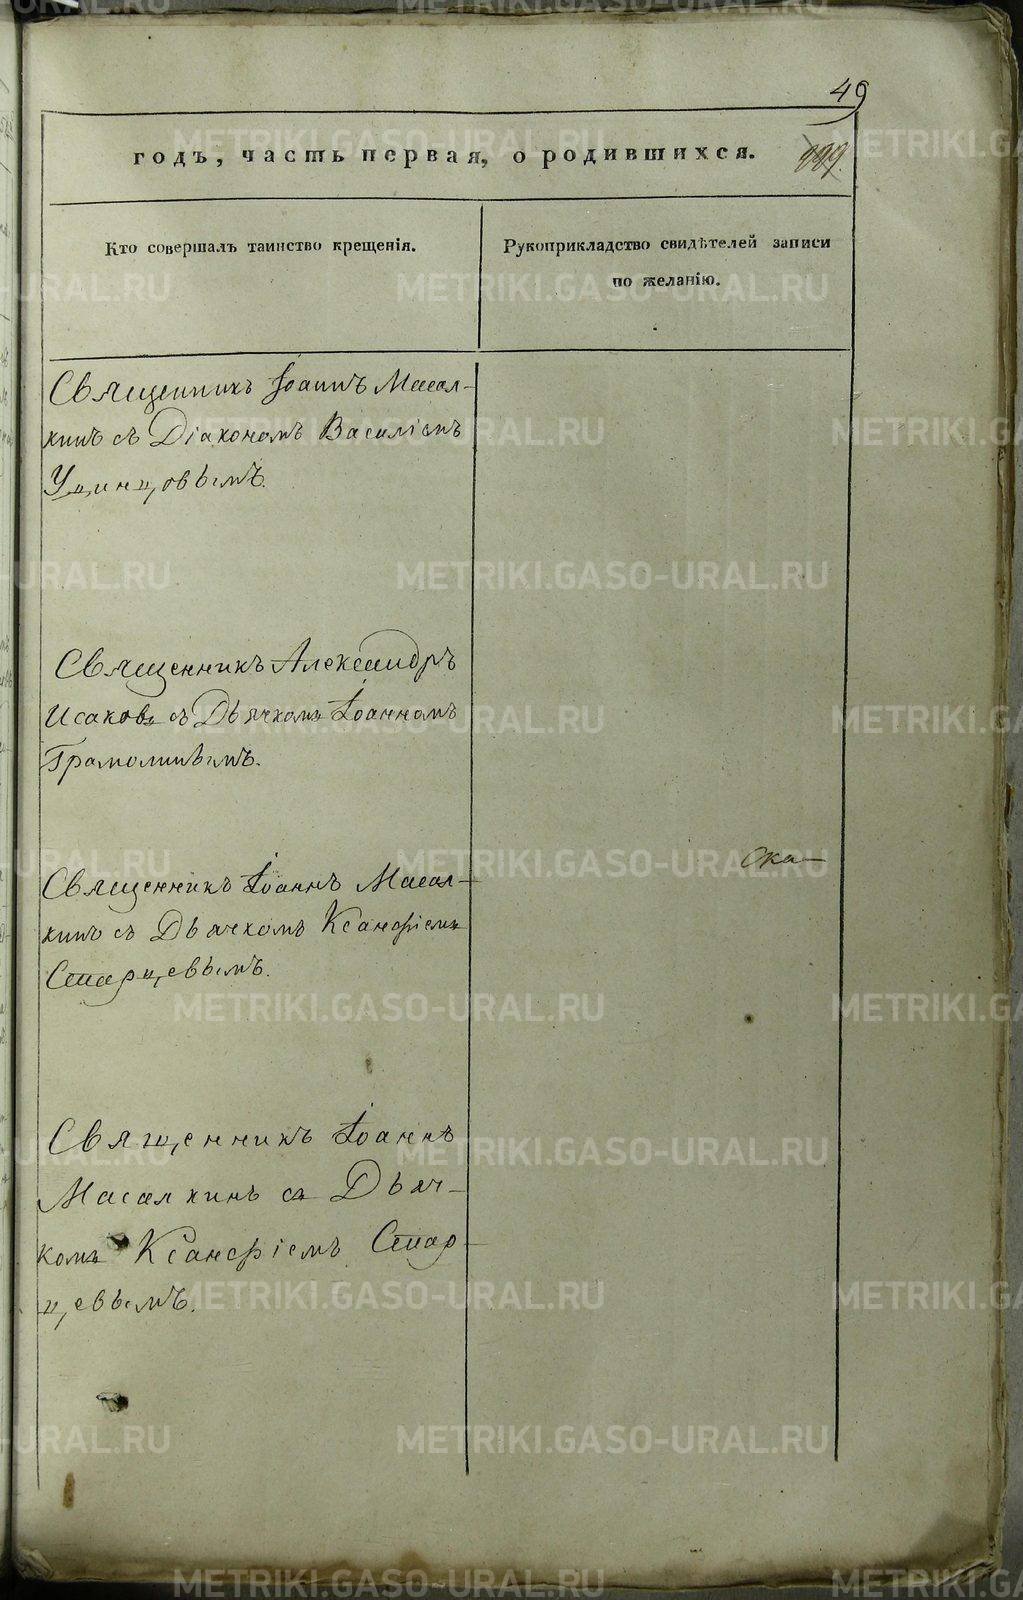 49
годъ, часть первая, о родившихся.
Кто совершалъ таинство крещенія.
Рукоприкладство свидѣтелей записи
по желанію.
Священникъ Іоаннъ Масал-
кинъ съ Діакономъ Василіемъ
Удинцовымъ.
Священникъ Александръ
Исаковъ съ Дьячкомъ Іоанномъ
Священникъ Іоаннъ Масал-
кинъ съ Дьячкомъ Ксанфіемъ
Старцевымъ.
Ска-
Священникъ Іоаннъ
Масалкинъ съ Дьяч-
комъ Ксанфіемъ Стар-
цевымъ.
METRIKI.GASO-URAL.RU